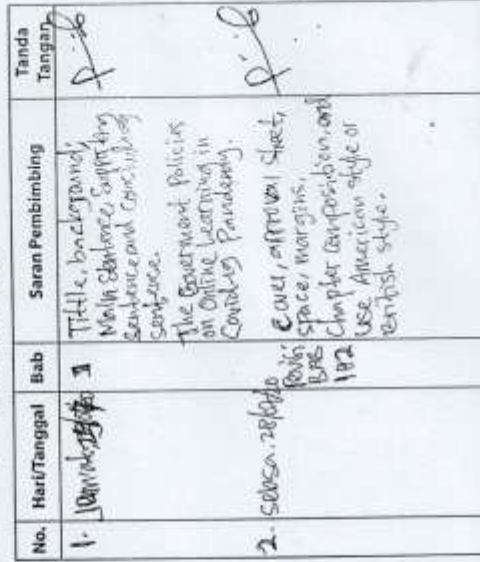 No. Hari/Tanggal Bab Saran Pembimbing Tanda Tangan
1. I Tittle, background,
Main Sentence, Supporting
sentence and Concluding
sentence.
The Goverment Policies
on Online Learning in
Covid-19 Pandemy.
2. Selasa, 28/ cover, approval sheet,
space, margins,
BAB Chapter composition, and
1&2 use American style or
British style.